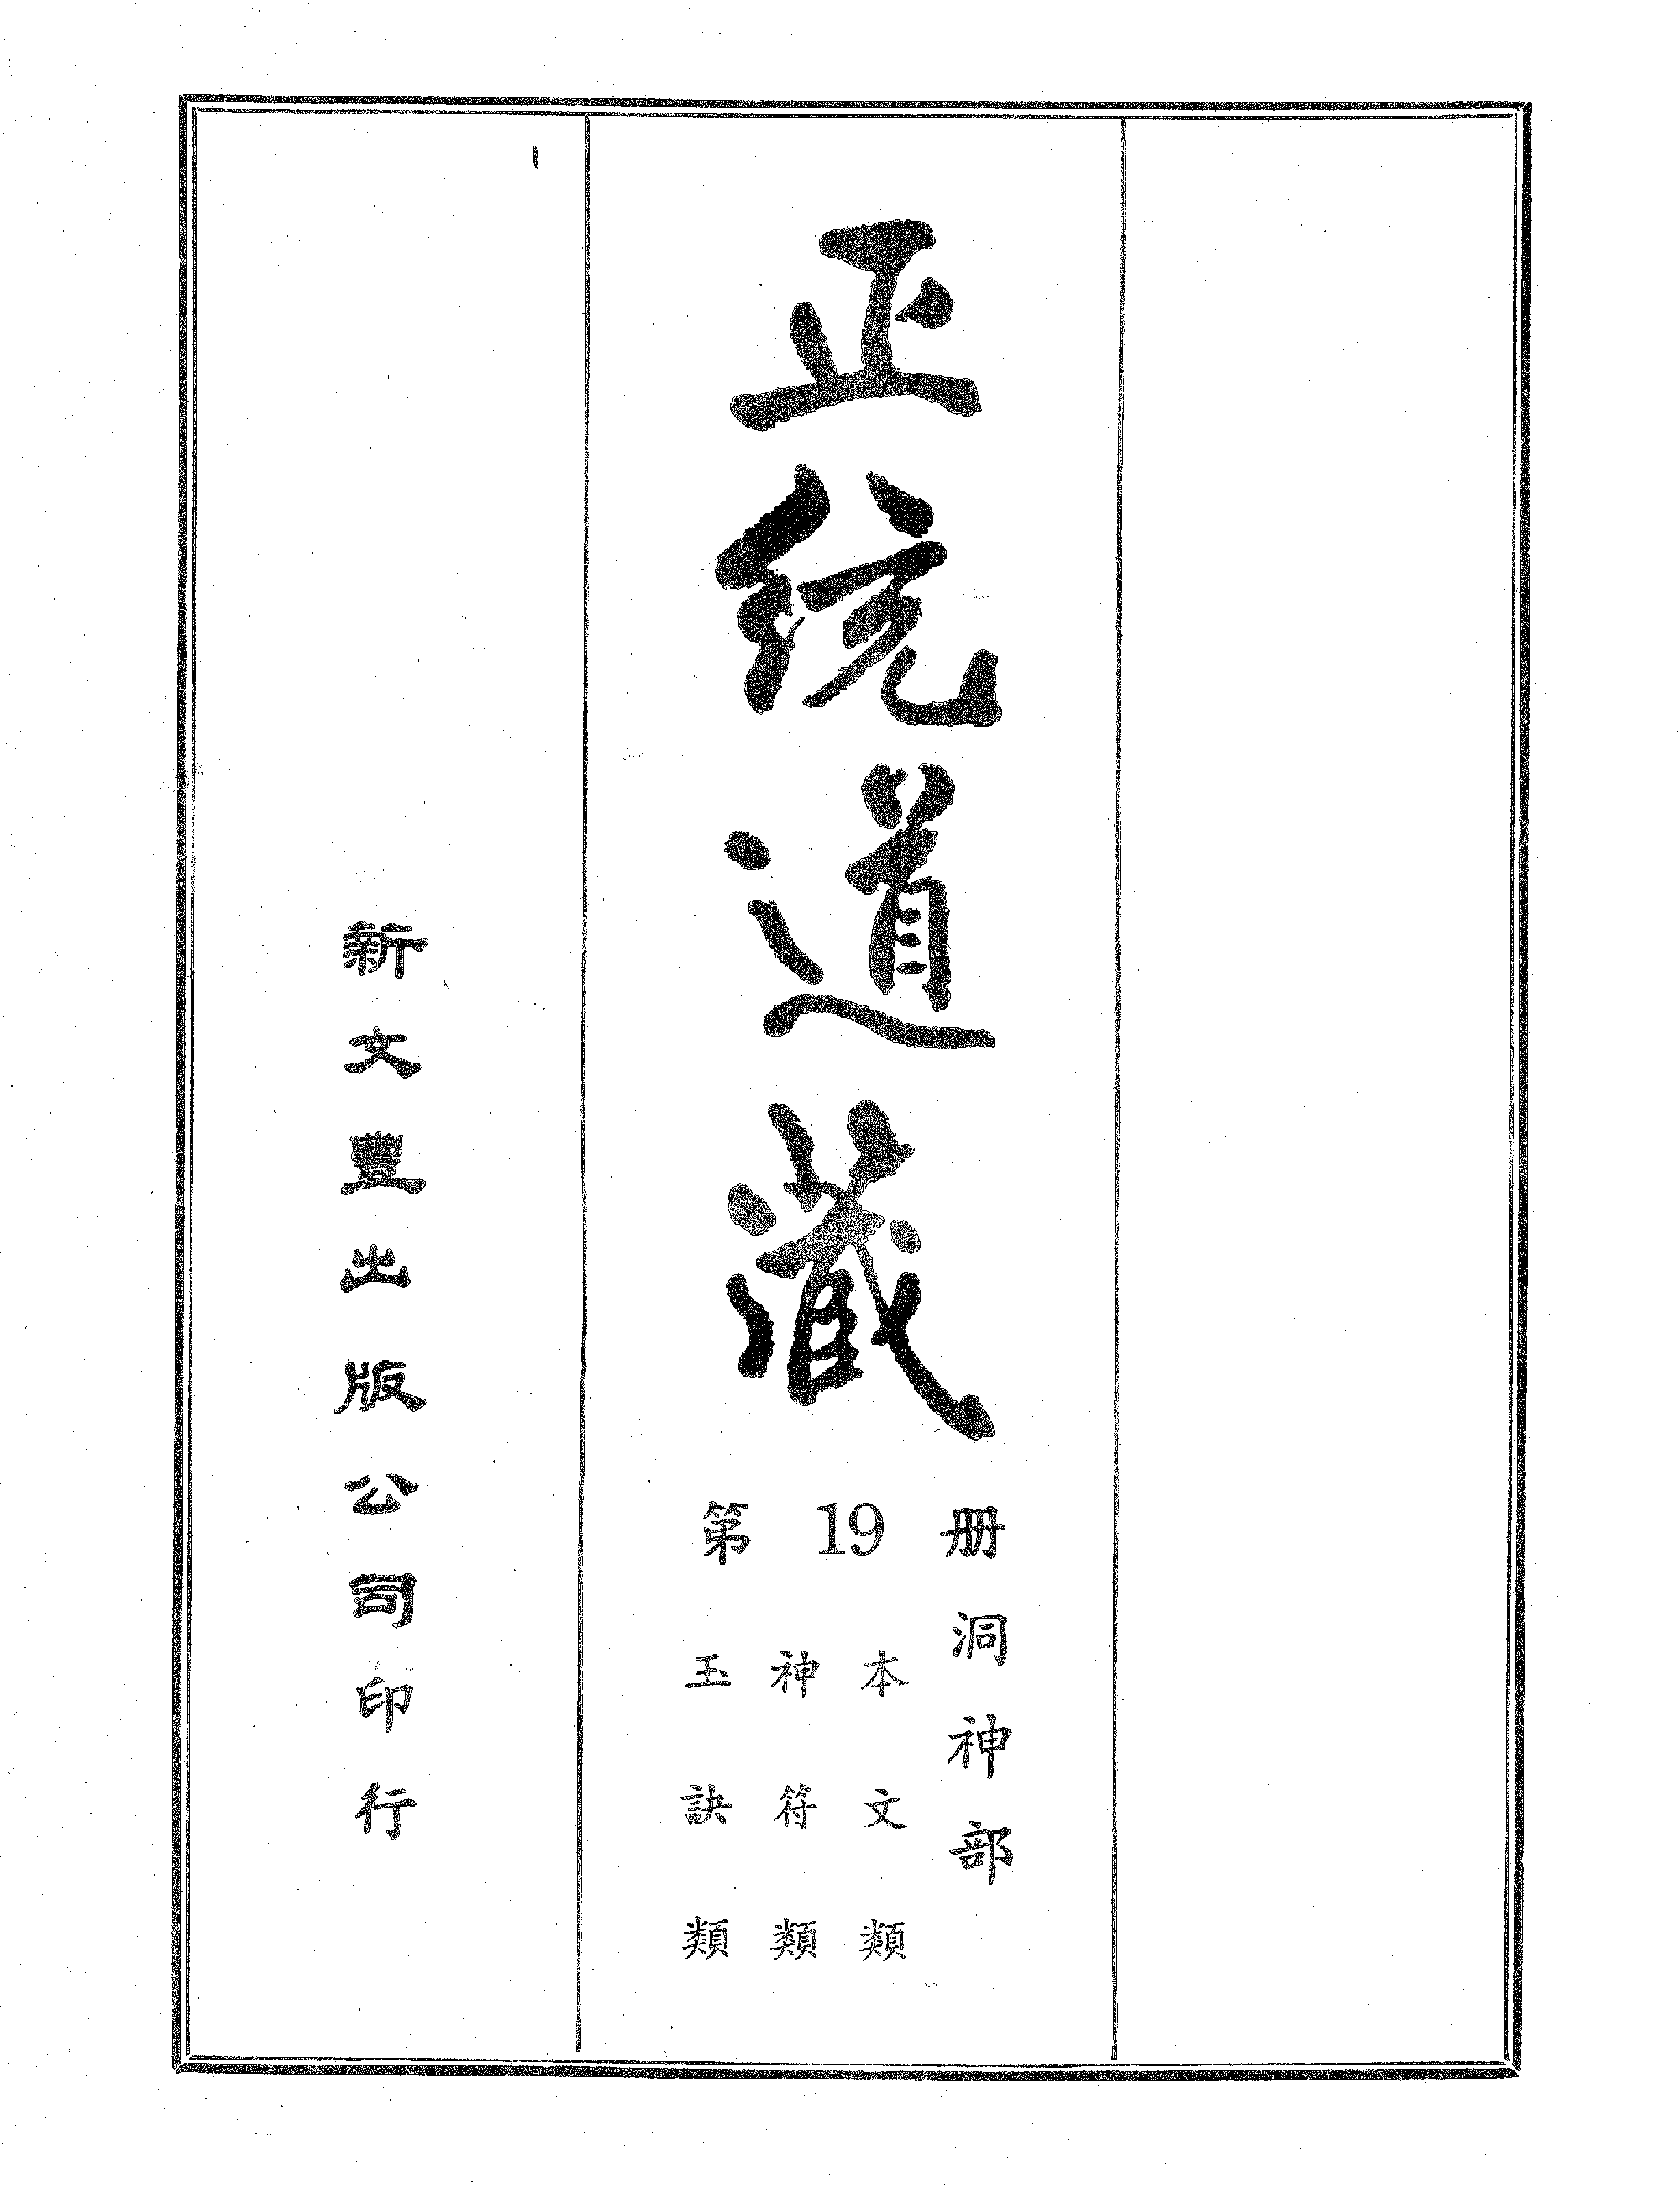 正統道藏
第19册
洞神部
本文類
神符類
玉訣類
新文豐出版公司印行